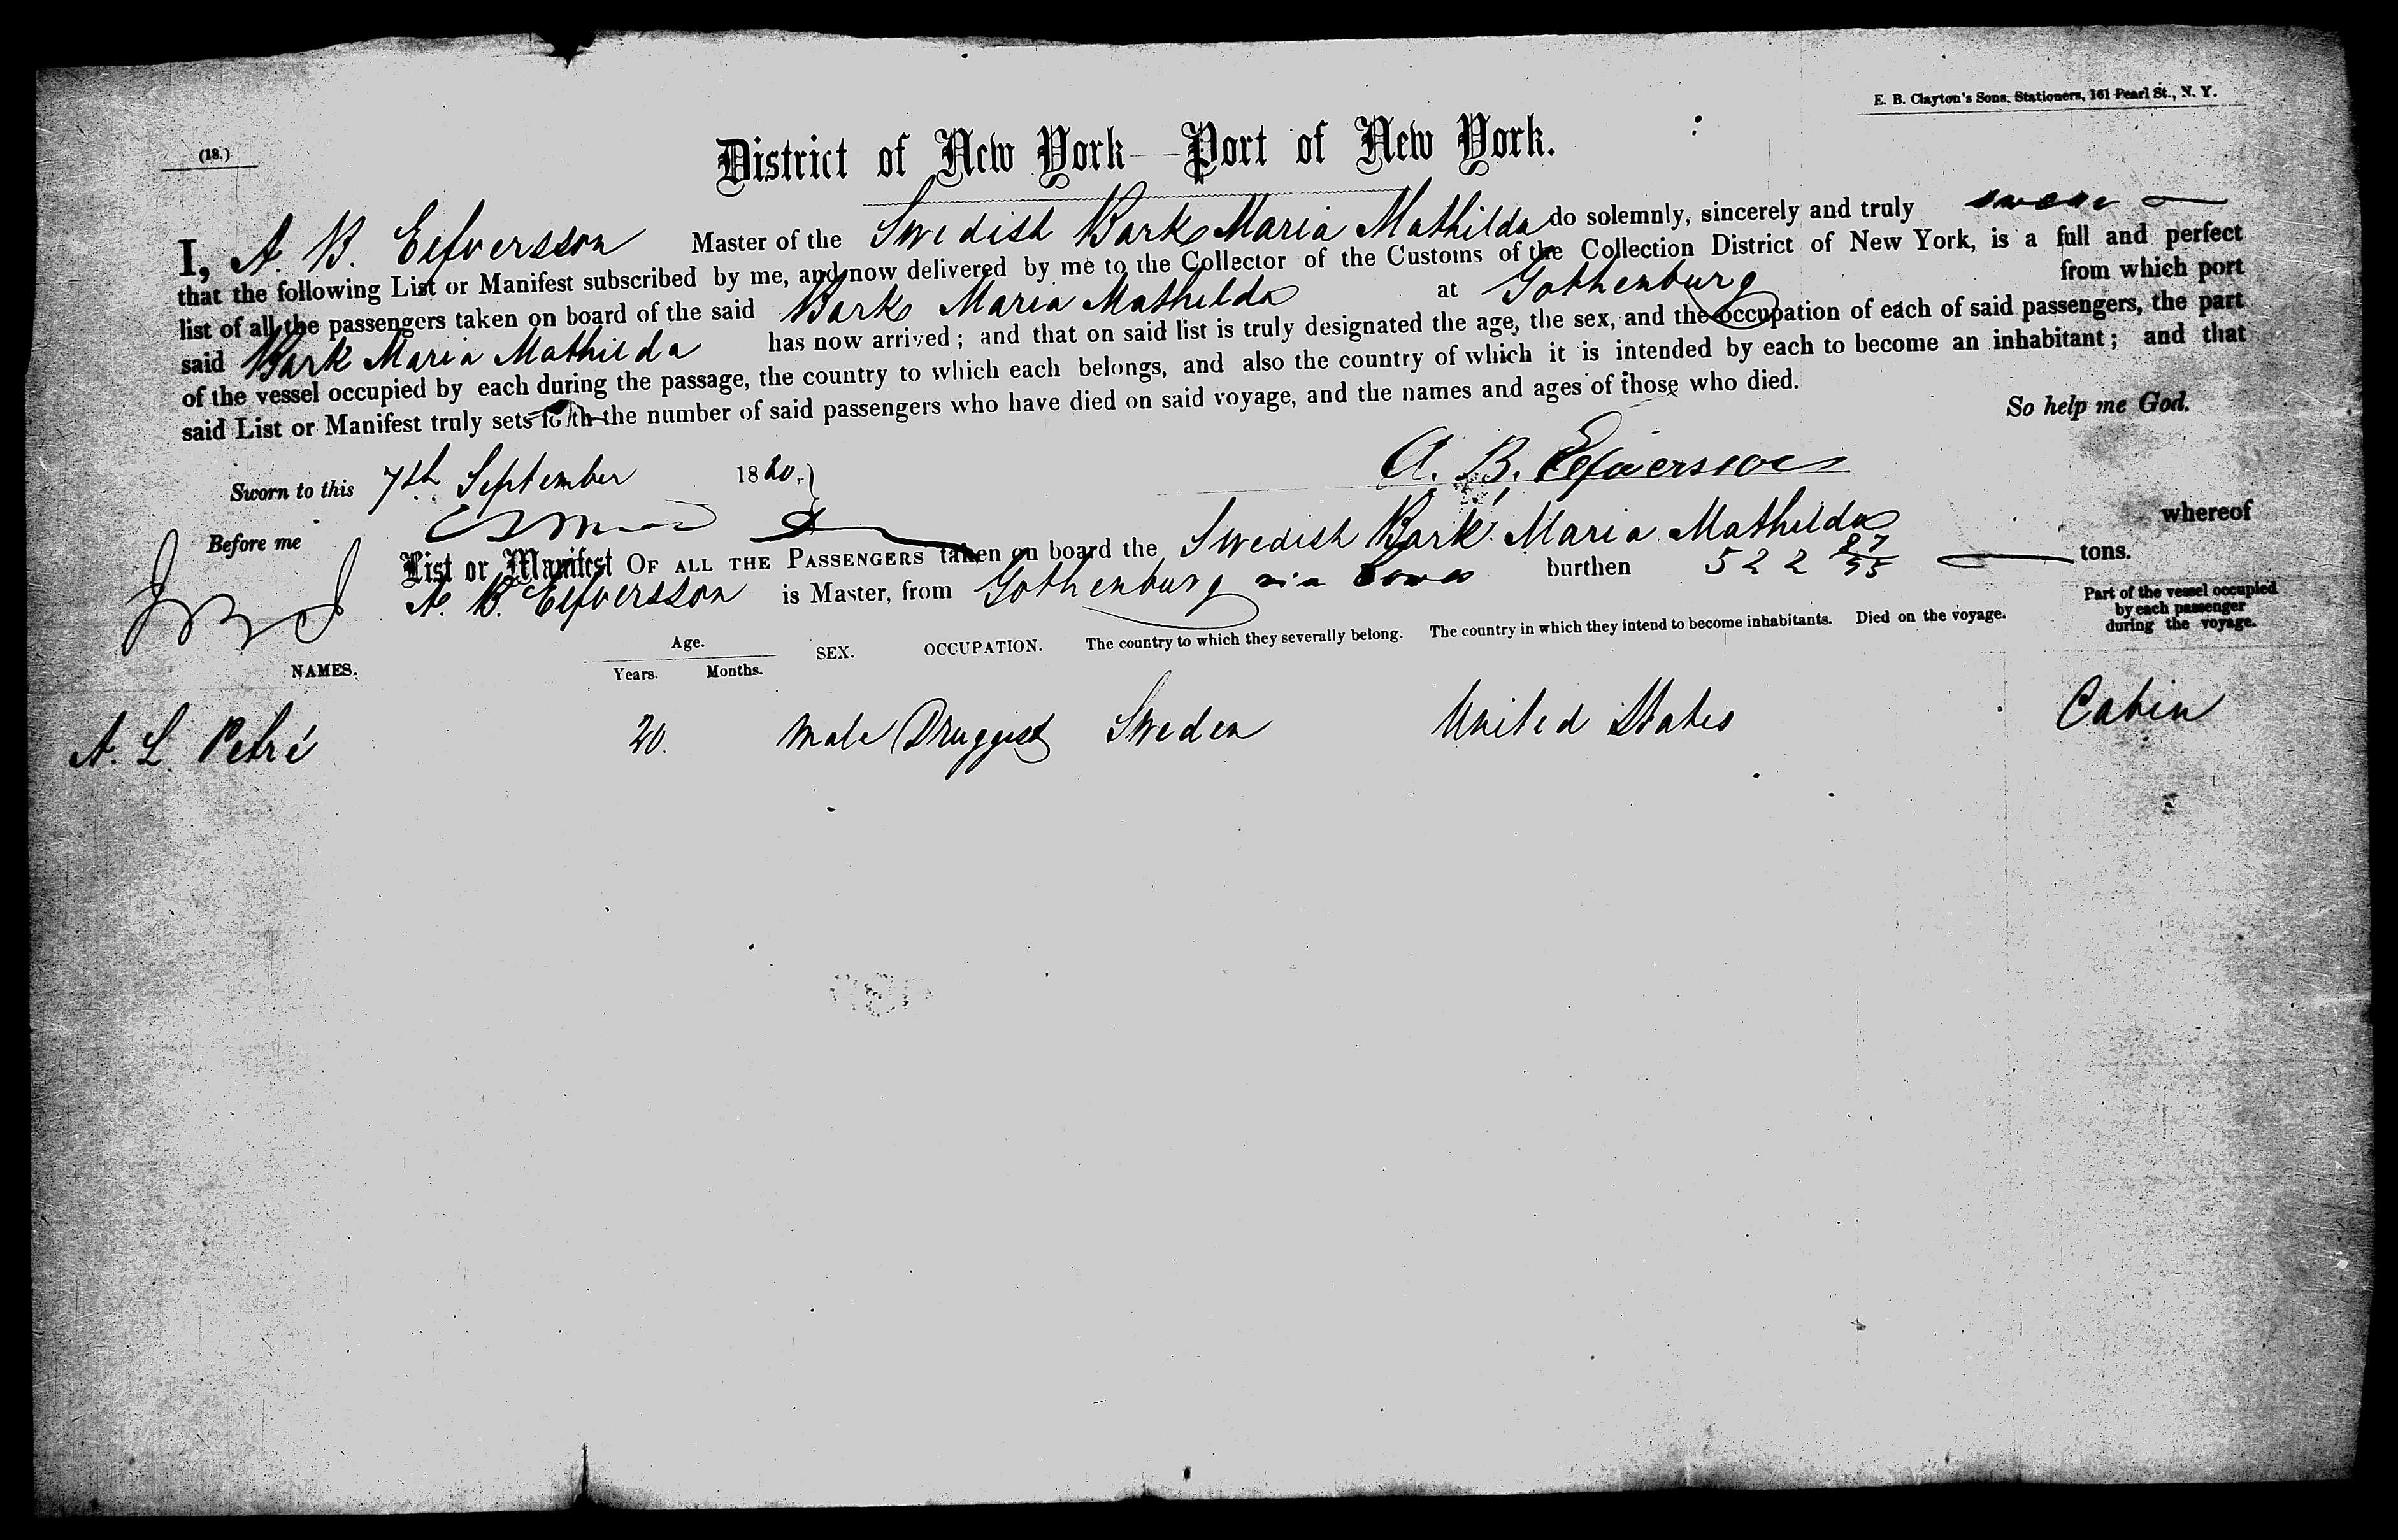 E. B. Clayton's Sons, Stationers, 161 Pearl St., N. Y.
(18.)
District of New York—Port of New York.
I, A. B. Eefversson Master of the Swedish Bark Maria Mathilda do solemnly, sincerely and truly swear
that the following List or Manifest subscribed by me, and now delivered by me to the Collector of the Customs of the Collection District of New York, is a full and perfect
list of all the passengers taken on board of the said Bark Maria Mathilda at Gothenburg from which port
said Bark Maria Mathilda has now arrived; and that on said list is truly designated the age, the sex, and the occupation of each of said passengers, the part
of the vessel occupied by each during the passage, the country to which each belongs, and also the country of which it is intended by each to become an inhabitant; and that
said List or Manifest truly sets forth the number of said passengers who have died on said voyage, and the names and ages of those who died.
So help me God.
Sworn to this 7th September 1860.
A. B. Eefversson
Before me
List or Manifest OF ALL THE PASSENGERS taken on board the Swedish Bark Maria Mathilda whereof
A. B. Eefversson is Master, from Gothenburg via Cowes burthen 522 87/95 tons.
NAMES. Age. Years. Months. SEX. OCCUPATION. The country to which they severally belong. The country in which they intend to become inhabitants. Died on the voyage. Part of the vessel occupied by each passenger during the voyage.
A. L. Petré 20. Male Druggist Sweden United States Cabin